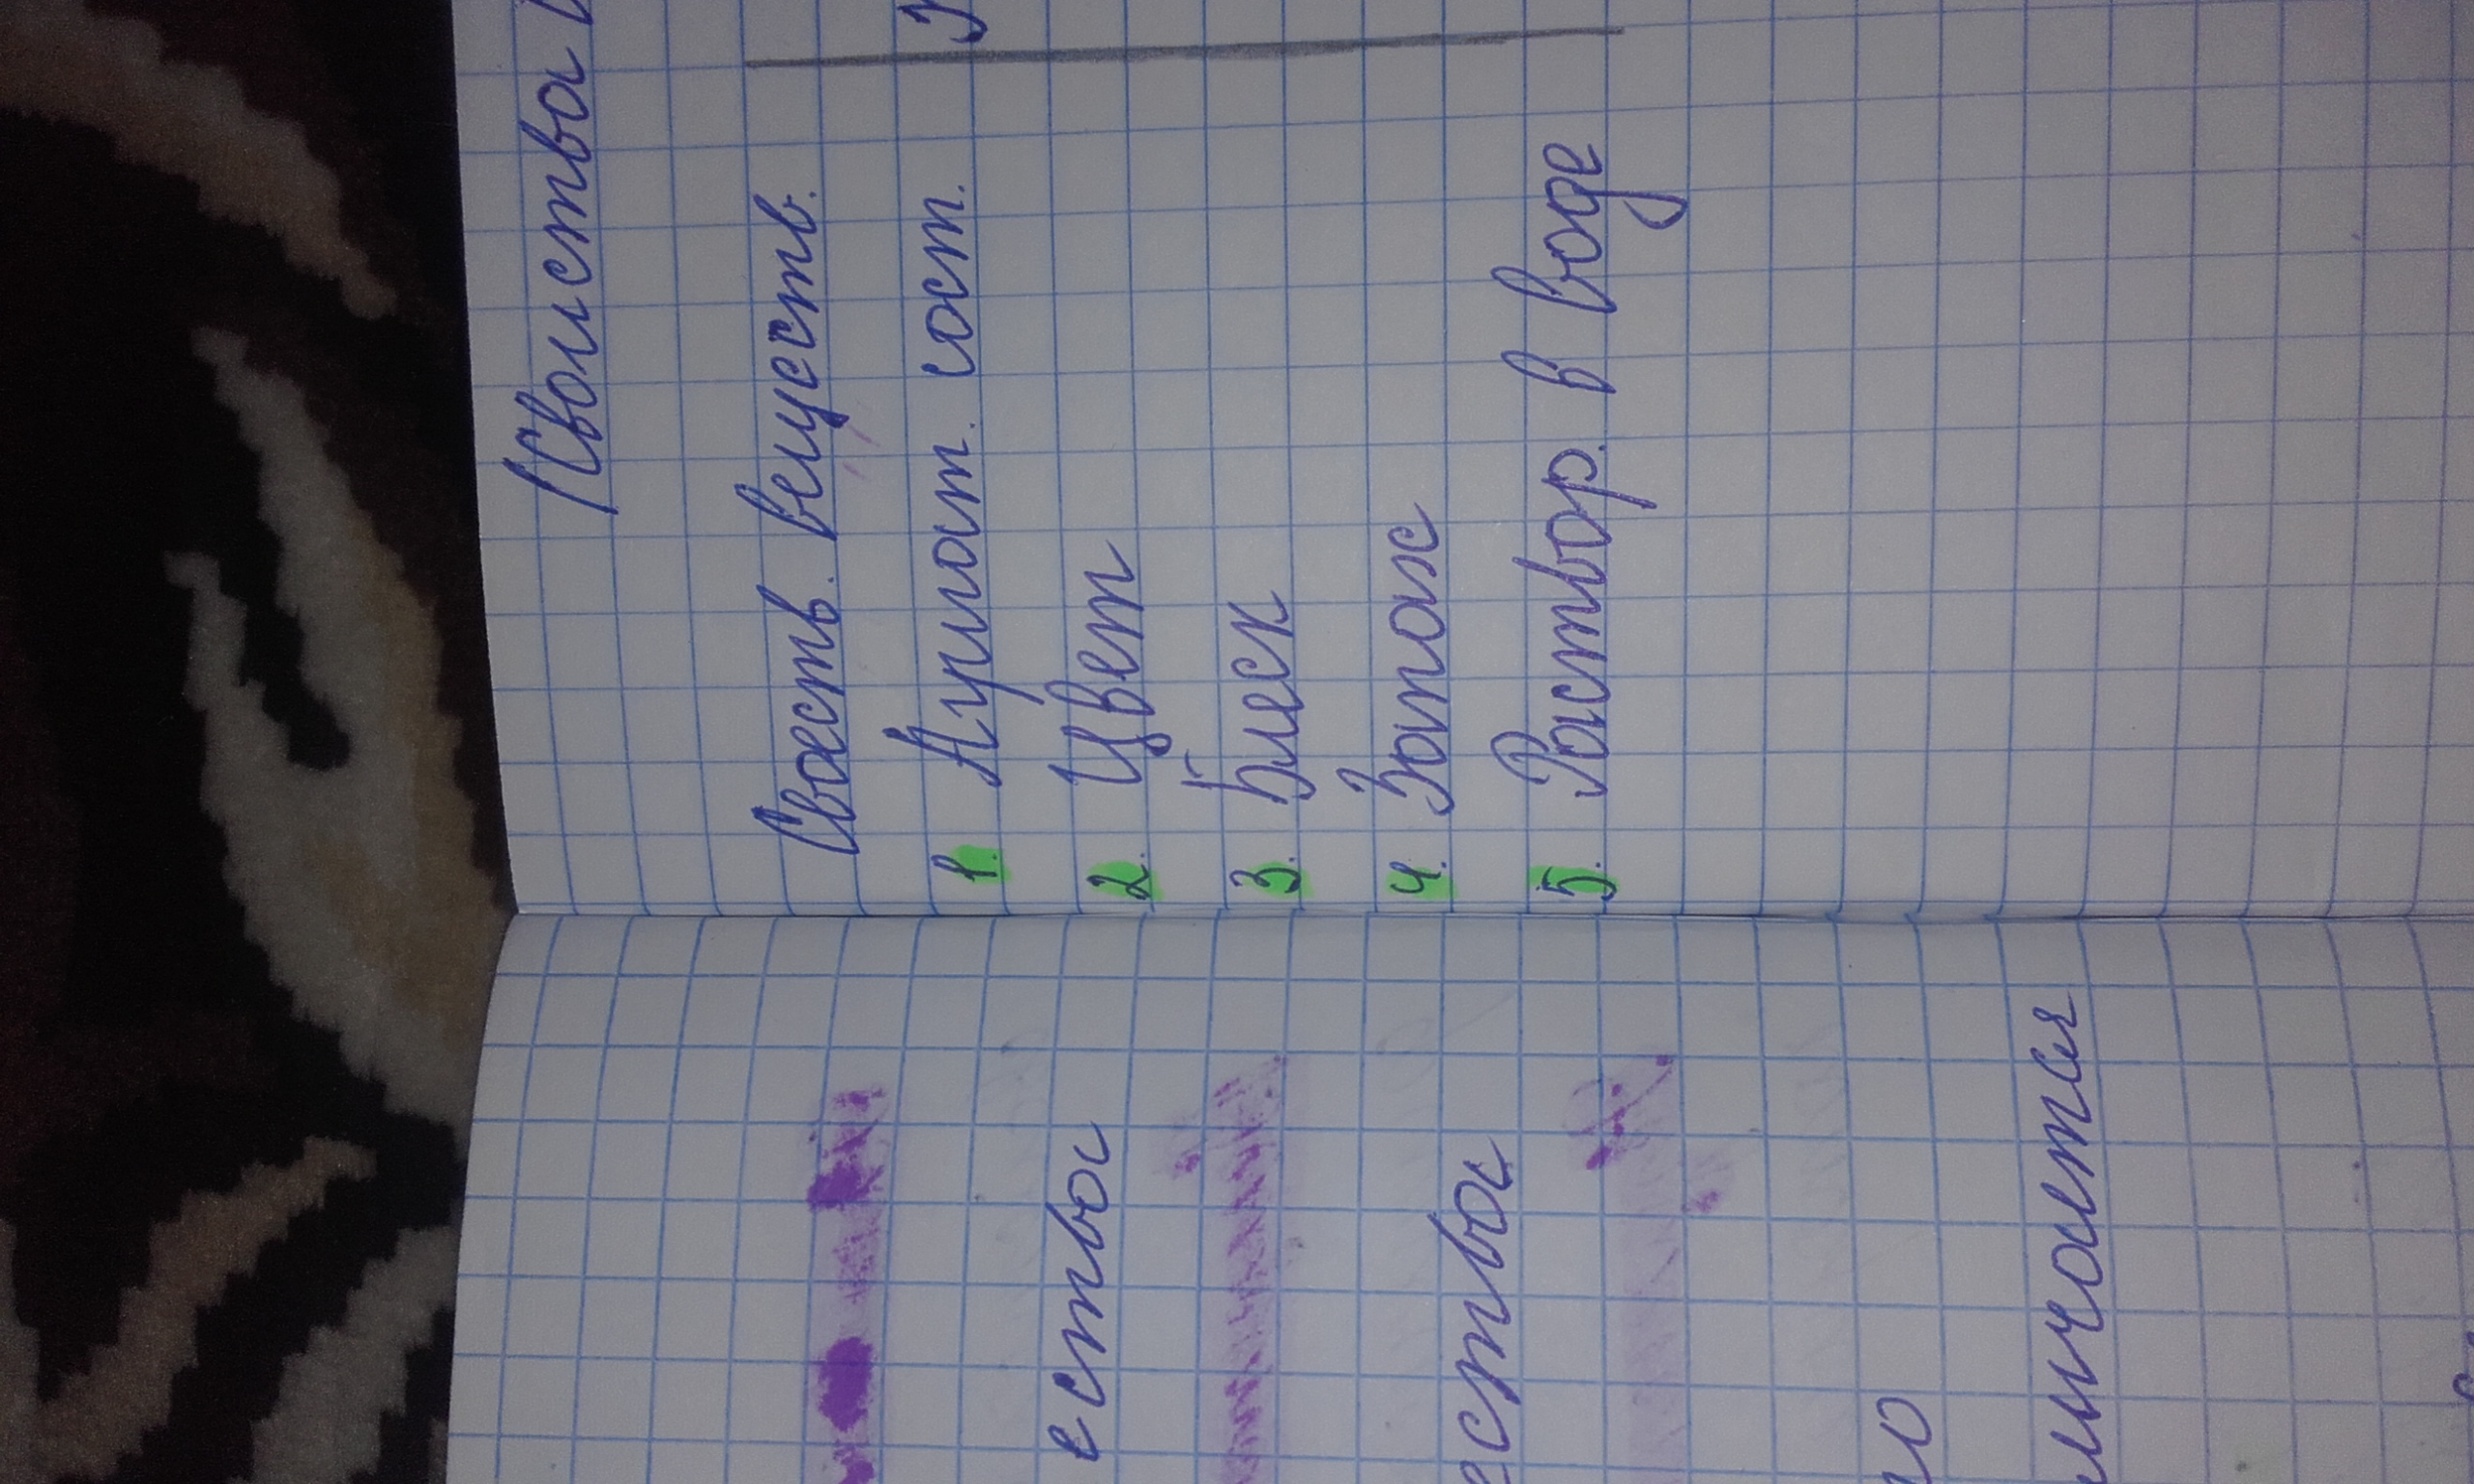 Свойства
Свойств. веществ.
1. Агрегат. сост.
2. Цвет
3. Блеск
4. Запах
5. Раствор. в воде
ества
ества